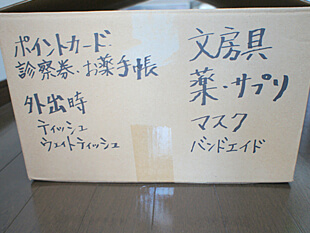 ポイントカード
診察券・お薬手帳
外出時
ティッシュ
ウェットティッシュ
文房具
薬・サプリ
マスク
バンドエイド